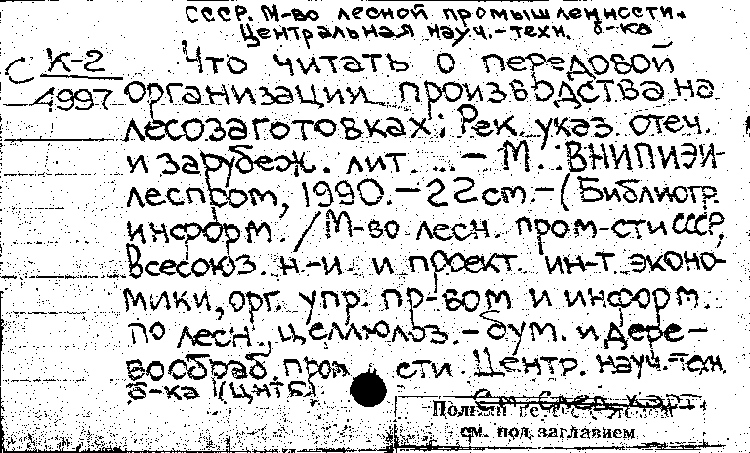 СССР. М-во лесной промышленности.
Центральная науч.-техн. б-ка
С К-2
4997
Что читать о передовой
организации производства на
лесозаготовках: Рек. указ. отеч.
и зарубеж. лит. ... – М.: ВНИПИЭИ-
леспром, 1990. – 22 ст. – (Библиогр.
информ. / М-во лесн. пром-сти СССР,
Всесоюз. н.-и. и проект. ин-т эконо-
мики, орг. упр. пр-вом и информ.
по лесн., целлюлоз.-бум. и дере-
вообраб. пром-сти. Центр. науч.-техн.
б-ка (ЦНТБ)
См. след. карт.
Полный
см. под заглавием